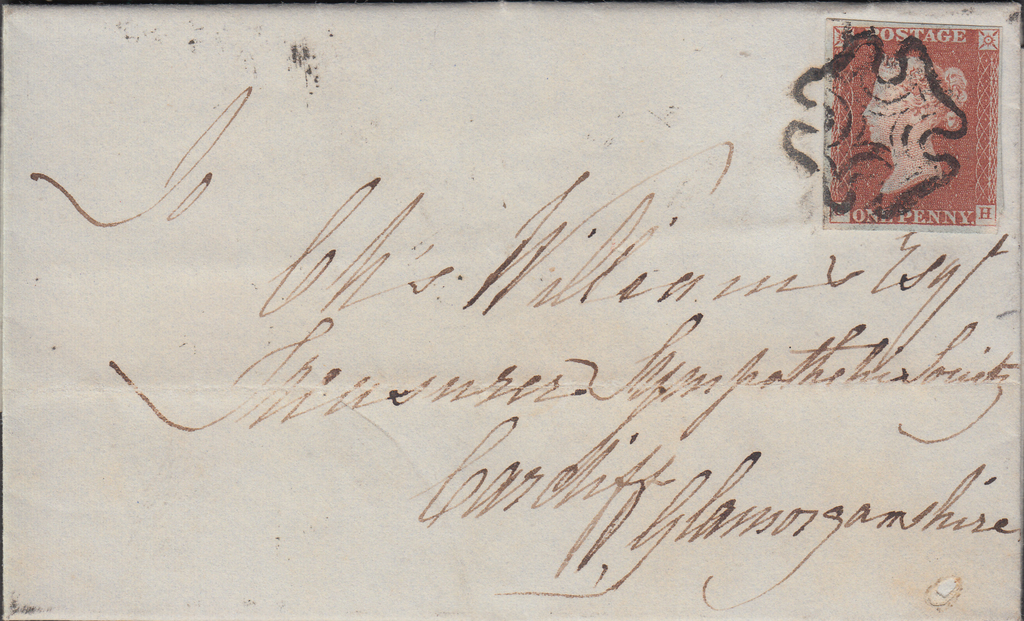 POSTAGE
ONE PENNY
H
To
Chs. Williams Esqr
Treasurer Sympathetic Society
Cardiff
Glamorganshire